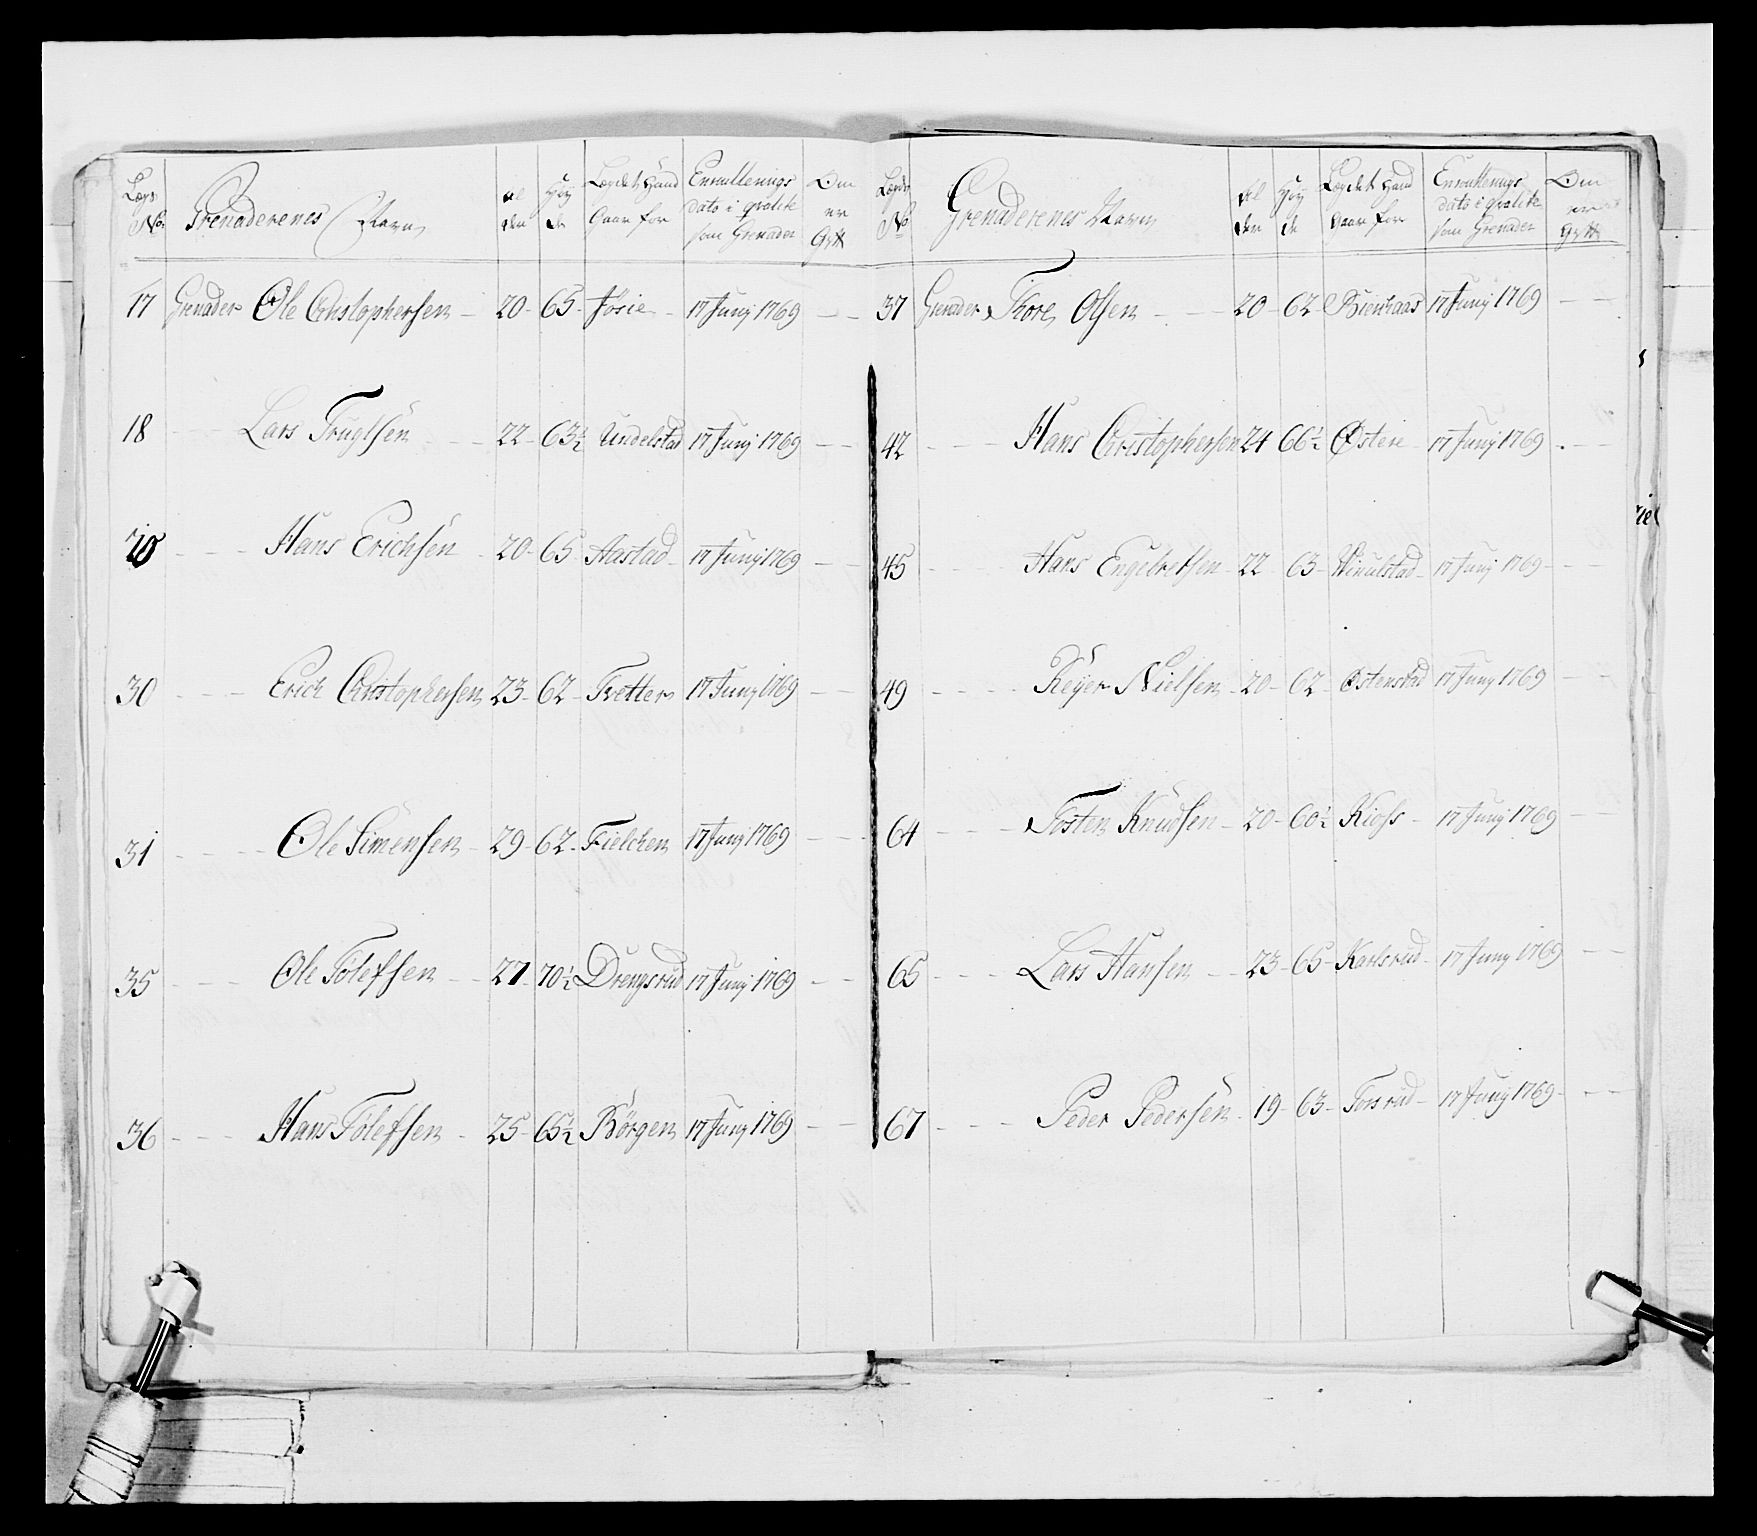 Lægs No. Grenaderenes Navn Alderen Høyde Lægdet Hand Gaar for Enrullerings dato i qvalité som Grenader Om er Gift
17 Grenader Ole Christophersen 20 65 Josie 17 Junj 1769
18 Lars Truglsen 22 63½ Undelstad 17 Junj 1769
Hans Erichsen 20 65 Aastad 17 Junj 1769
30 Erich Christophersen 23 62 Tretter 17 Junj 1769
31 Ole Simensen 29 62 Fielchen 17 Junj 1769
35 Ole Tolefsen 27 70½ Drengsrud 17 Junj 1769
36 Hans Tolefsen 25 65½ Börgen 17 Junj 1769
Lægds No Grenaderenes Navn Alderen Høyde Lægdet Hand Gaar for Enrullerings dato i qvalité som Grenader Om er Gift
37 Grenader Tore Olsen 20 62 17 Junj 1769
42 Hans Christophersen 24 66½ Østere 17 Junj 1769
45 Hans Engebretsen 22 63 17 Junj 1769
49 Reyer Nielsen 20 62 Østenstad 17 Junj 1769
64 Tosten Knudsen 20 60½ Kioss 17 Junj 1769
65 Lars Hansen 23 65 Karlsrud 17 Junj 1769
67 Peder Pedersen 19 63 Torsrud 17 Junj 1769